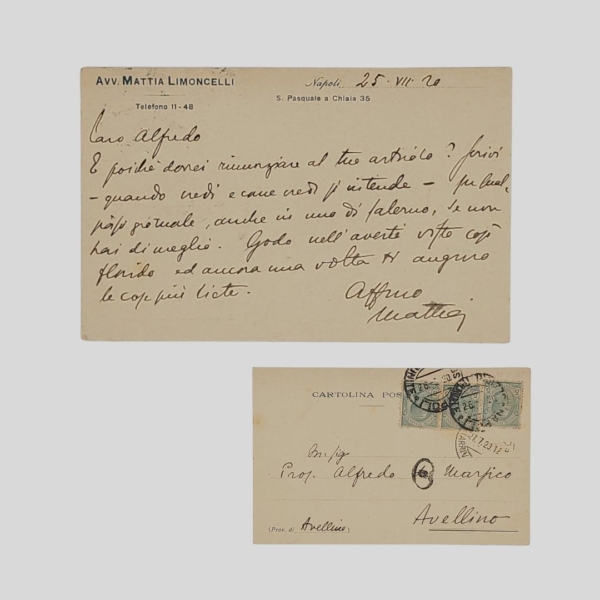 AVV. MATTIA LIMONCELLI
Telefono 11-48
Napoli, 25 - VII - 20
S. Pasquale a Chiaia 35
Caro Alfredo
E poiché dovrei rinunziare al tuo articolo? Scrivi
- quando vedi e come vedi si intende - in qual-
siasi giornale, anche in uno di Salerno, se non
hai di meglio. Godo nell'averti visto così
florido ed ancora una volta ti auguro
le cose più liete.
Affmo
Mattia
CARTOLINA POS
Prof. Alfredo Marpico
Avellino
(Prov. di Avellino)